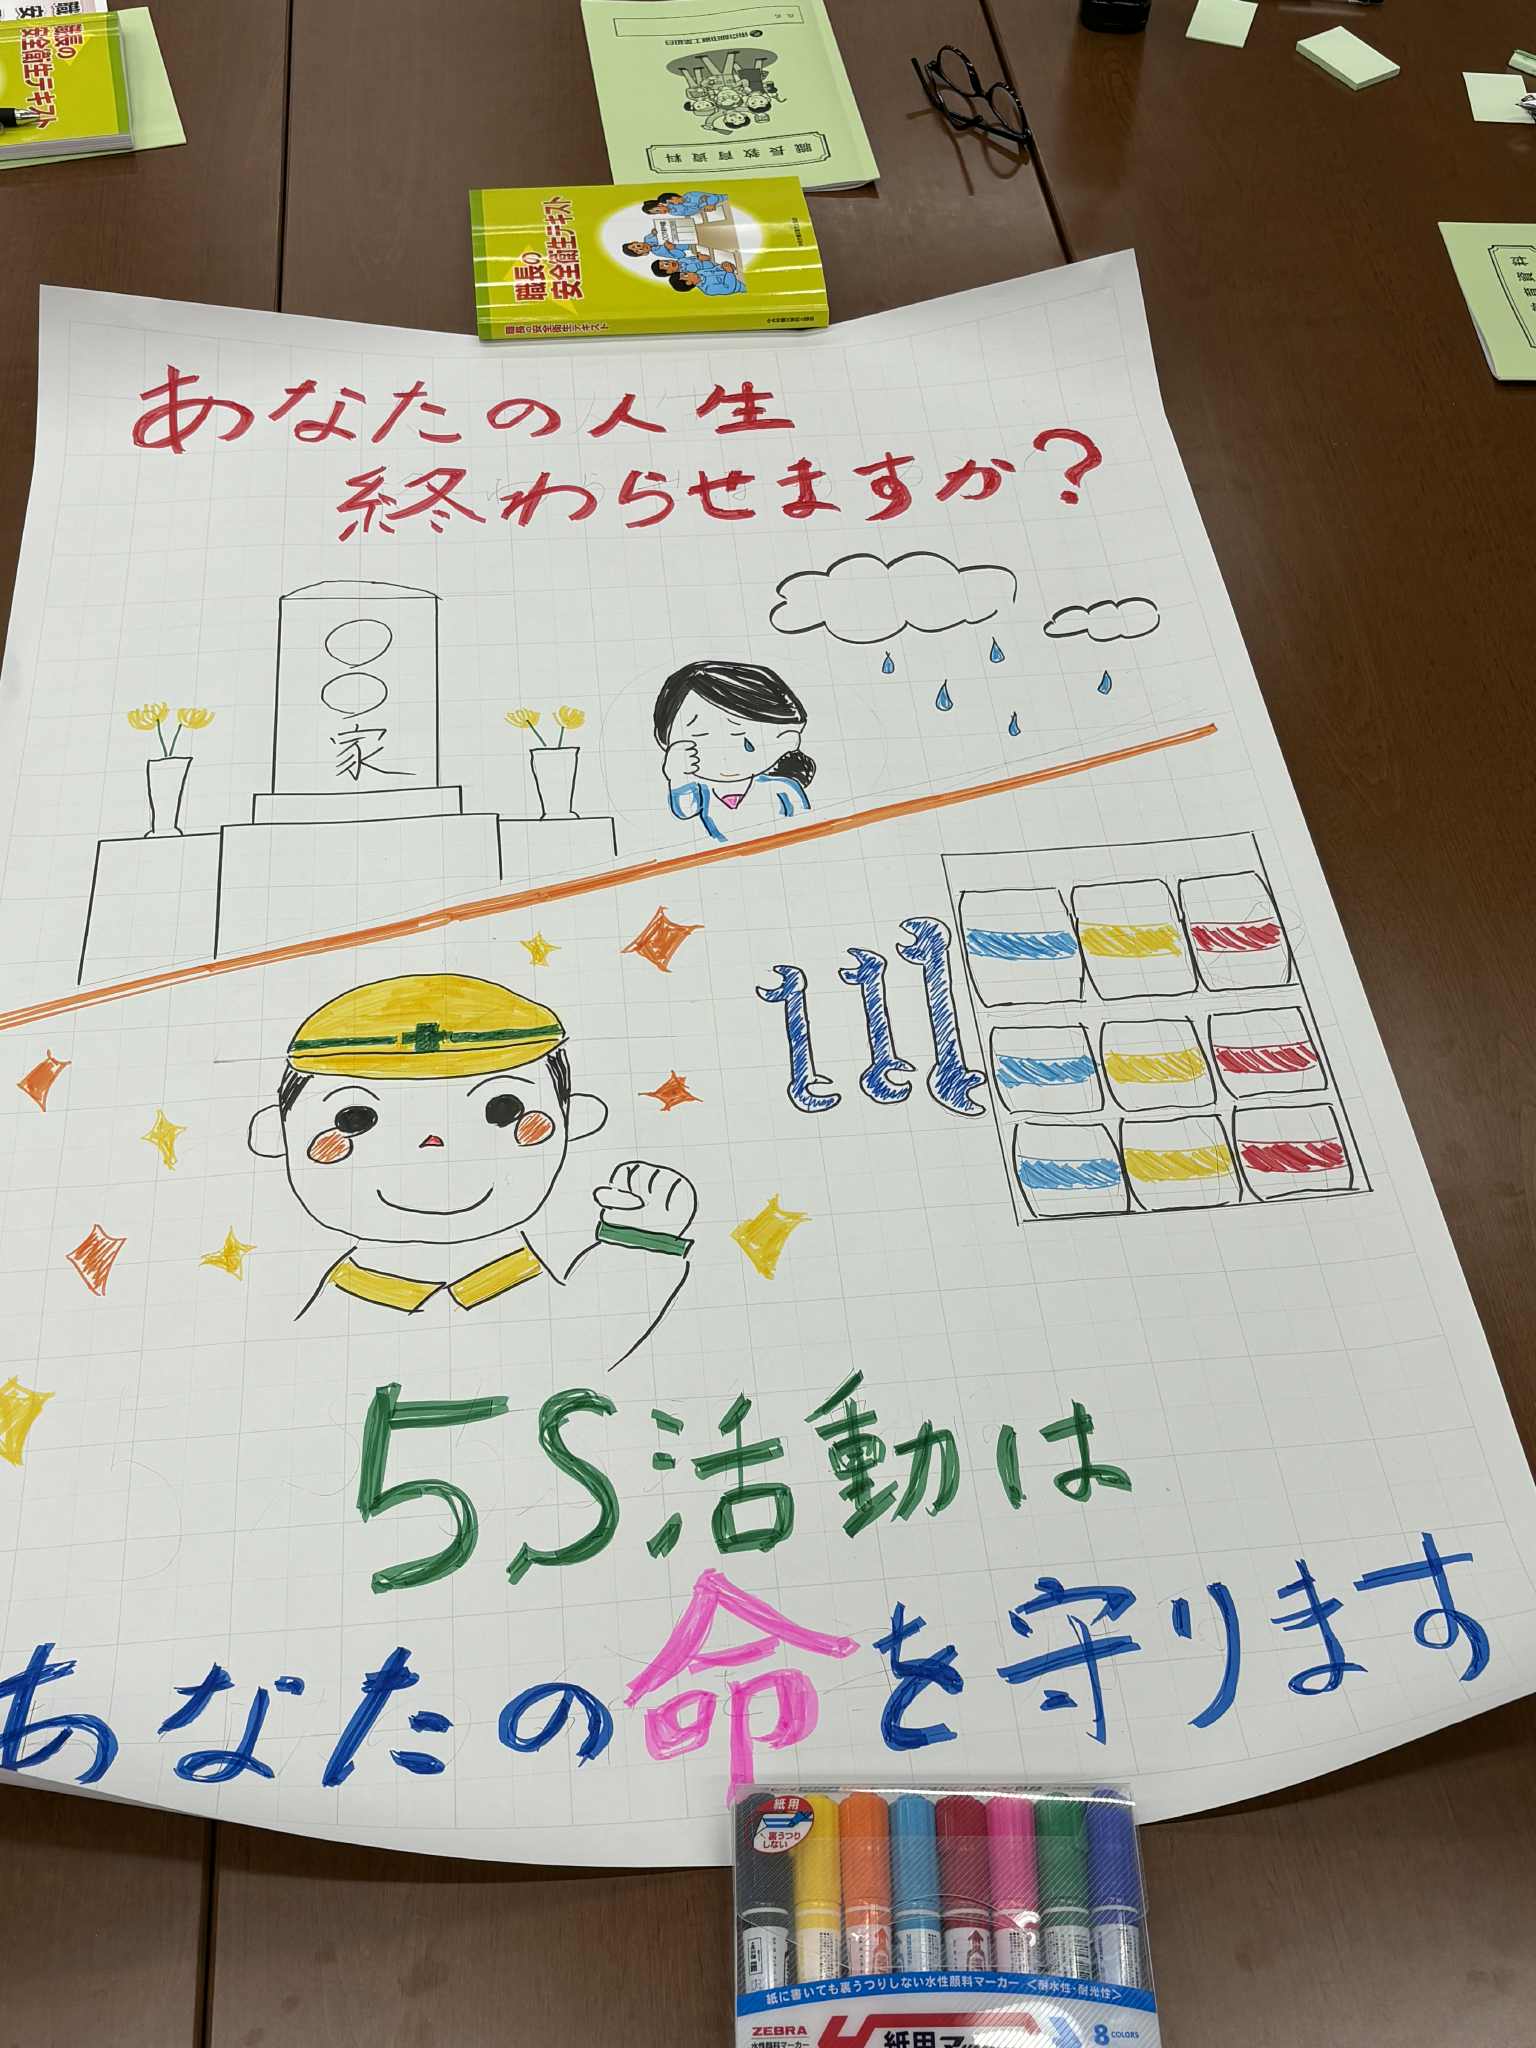 職長の
安全衛生テキスト
職長教育資料
職長の
安全衛生テキスト
職長の安全衛生テキスト
あなたの人生
終わらせますか？
〇〇家
5S活動は
あなたの命を守ります
紙用
裏うつり
しない
紙に書いても裏うつりしない水性顔料マーカー <耐水性・耐光性>
ZEBRA
水性顔料マーカー
紙用マッ
8 COLORS